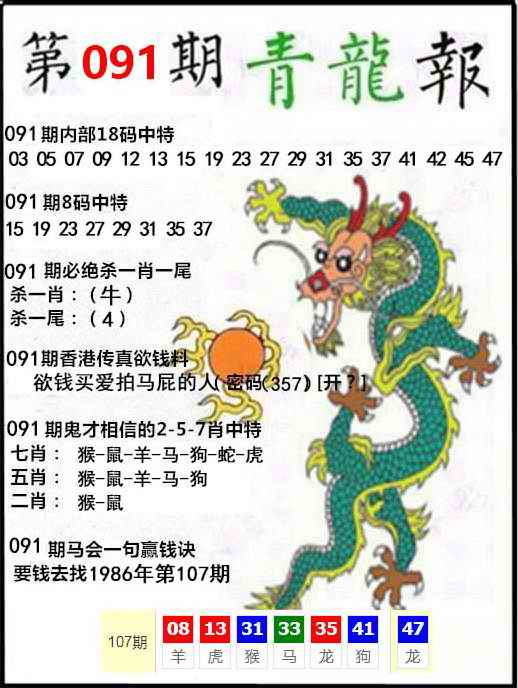 第091期青龍報
091期内部18码中特
03 05 07 09 12 13 15 19 23 27 29 31 35 37 41 42 45 47
091期8码中特
15 19 23 27 29 31 35 37
091 期必绝杀一肖一尾
杀一肖：（牛）
杀一尾：（4）
091期香港传真欲钱料
欲钱买爱拍马屁的人( 密码(357) [开？]
091期鬼才相信的2-5-7肖中特
七肖： 猴-鼠-羊-马-狗-蛇-虎
五肖： 猴-鼠-羊-马-狗
二肖： 猴-鼠
091 期马会一句赢钱诀
要钱去找1986年第107期
107期 08 13 31 33 35 41 47
羊 虎 猴 马 龙 狗 龙